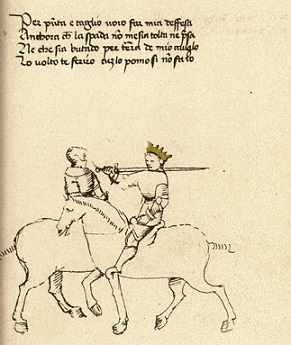 Per pūta e taglio voio far mia deffesa
Anchora che la spada nō me sia tolta ne psa
Ne che sia butado per terra de mio cavallo
Lo volto te feriro cū lo pomo si nō falo